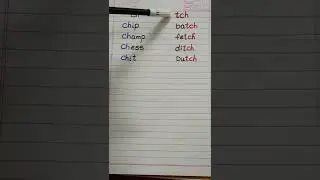 tch
chip batch
champ fetch
chess ditch
chit Dutch